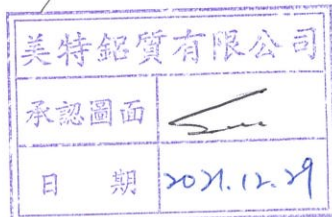 美特鋁質有限公司
承認圖面
日 期 2021.12.29